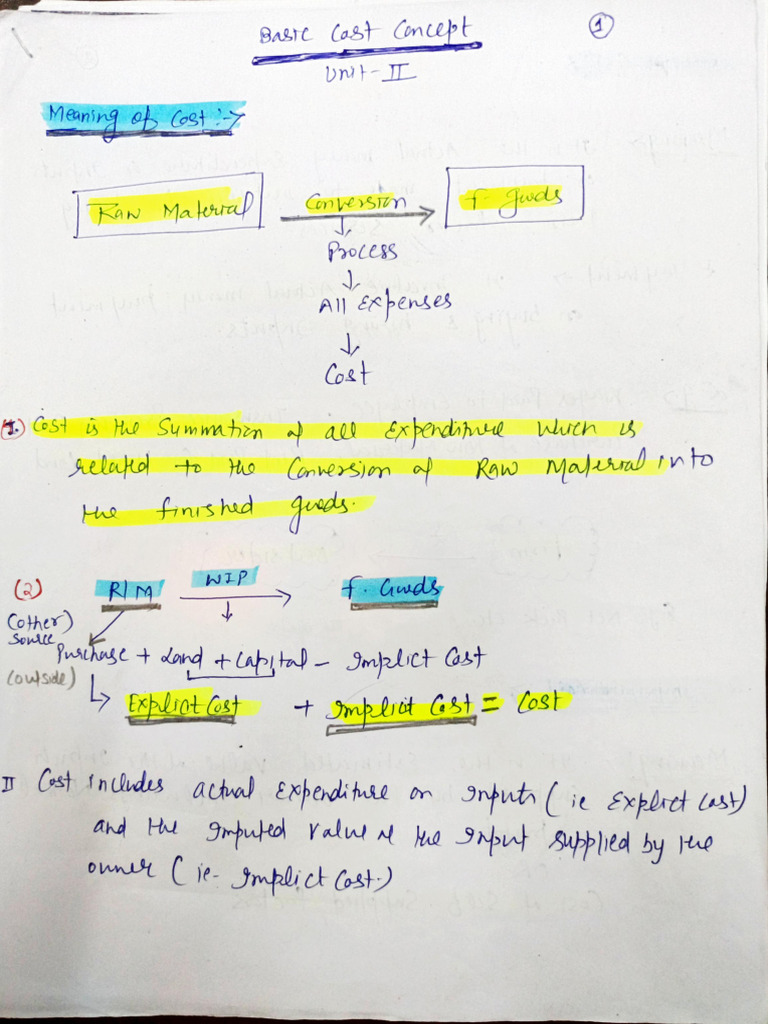 Basic Cost Concept
1
Unit-II
Meaning of Cost :-
Raw Material
Conversion
f. Goods
Process
All Expenses
Cost
1. Cost is the Summation of all Expenditure which is
related to the Conversion of Raw Material into
the finished goods.
(2) R/M WIP f. Goods
(other)
source
Purchase + Land + Capital - Implict Cost
(outside)
Explict Cost + Implicit Cost = Cost
II Cost includes actual Expenditure on Inputs (ie Explict Cost)
and the Imputed value of the Input supplied by the
owner (ie- Implict Cost.)